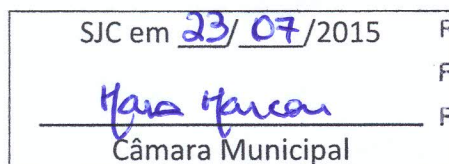 SJC em 23/07/2015
Mara Marcon
Câmara Municipal